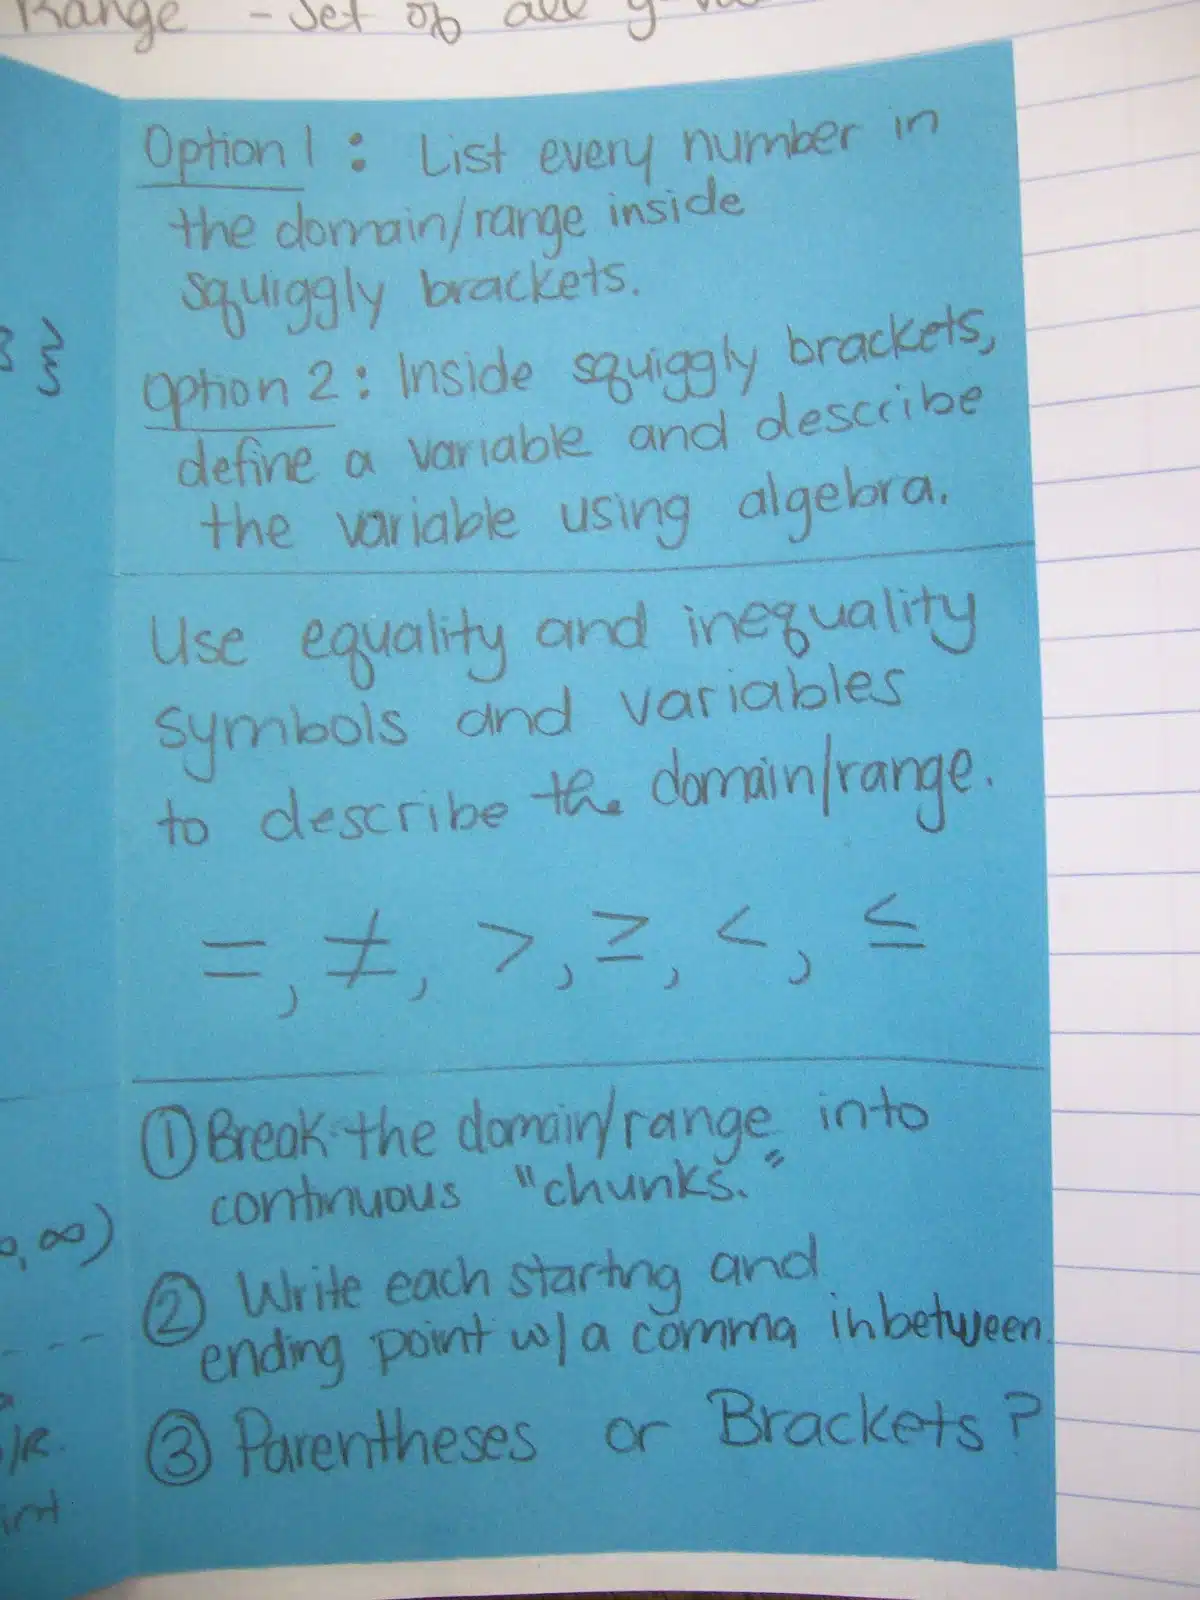 Range - Set of all y-va
Option 1: List every number in
the domain/range inside
squiggly brackets.
3 }
Option 2: Inside squiggly brackets,
define a variable and describe
the variable using algebra.
Use equality and inequality
symbols and variables
to describe the domain/range.
=, ≠, >, ≥, <, ≤
① Break the domain/range into
continuous "chunks."
, ∞)
② Write each starting and
ending point w/ a comma inbetween.
/R.
③ Parentheses or Brackets?
int